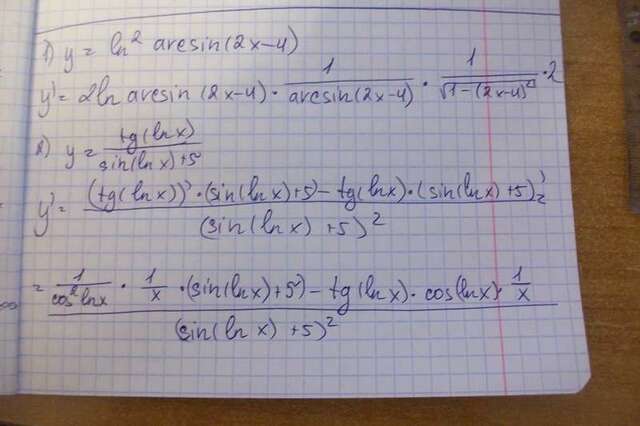 1) y = ln² arcsin(2x-4)
y' = 2ln arcsin(2x-4) · 1/arcsin(2x-4) · 1/√1-(2x-4)² · 2
2) y = tg(ln x)/sin(ln x)+5
y' = (tg(ln x))' · (sin(ln x)+5) - tg(ln x) · (sin(ln x)+5)' / (sin(ln x)+5)² =
= 1/cos² ln x · 1/x · (sin(ln x)+5) - tg(ln x) · cos(ln x) · 1/x / (sin(ln x)+5)²